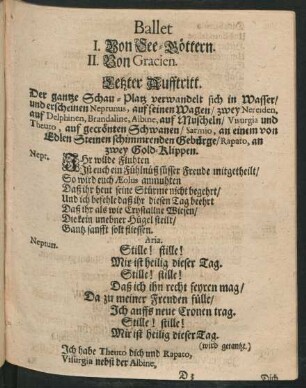 Ballet
I. Von See-Göttern.
II. Von Gracien.
Letzter Aufftritt.
Der gantze Schau-Platz verwandelt sich in Wasser/
und erscheinen Neptunus, auf seinen Wagen/ zwey Nereiden,
auf Delphinen, Brandaline, Albine, auf Muscheln/ Visurgis und
Theuto, auf gecrönten Schwanen/ Sarmio, an einem von
Edlen Steinen schimmrenden Gebürge/ Rapato, an
zwey Gold-Klippen.
Nept. IHr wilde Fluhten
Ist euch ein Fühlnüß süsser Freude mitgetheilt/
So wird euch Æolus anmuhten
Daß ihr heut seine Stürme nicht begehrt/
Und ich befehle daß ihr diesen Tag beehrt
Daß ihr als wie Crystalline Wiesen/
Die kein unebner Hügel theilt/
Gantz sanfft solt fliessen.
Aria.
Neptun. Stille! stille!
Mir ist heilig dieser Tag.
Stille! stille!
Daß ich ihn recht feyren mag/
Da zu meiner Freuden fülle/
Ich auffs neue Cronen trag.
Stille! stille!
Mir ist heilig dieser Tag.
(wird getantzt.)
Ich habe Theuto dich und Rapato,
Visurgis nebst der Albine,
D 3
Dich